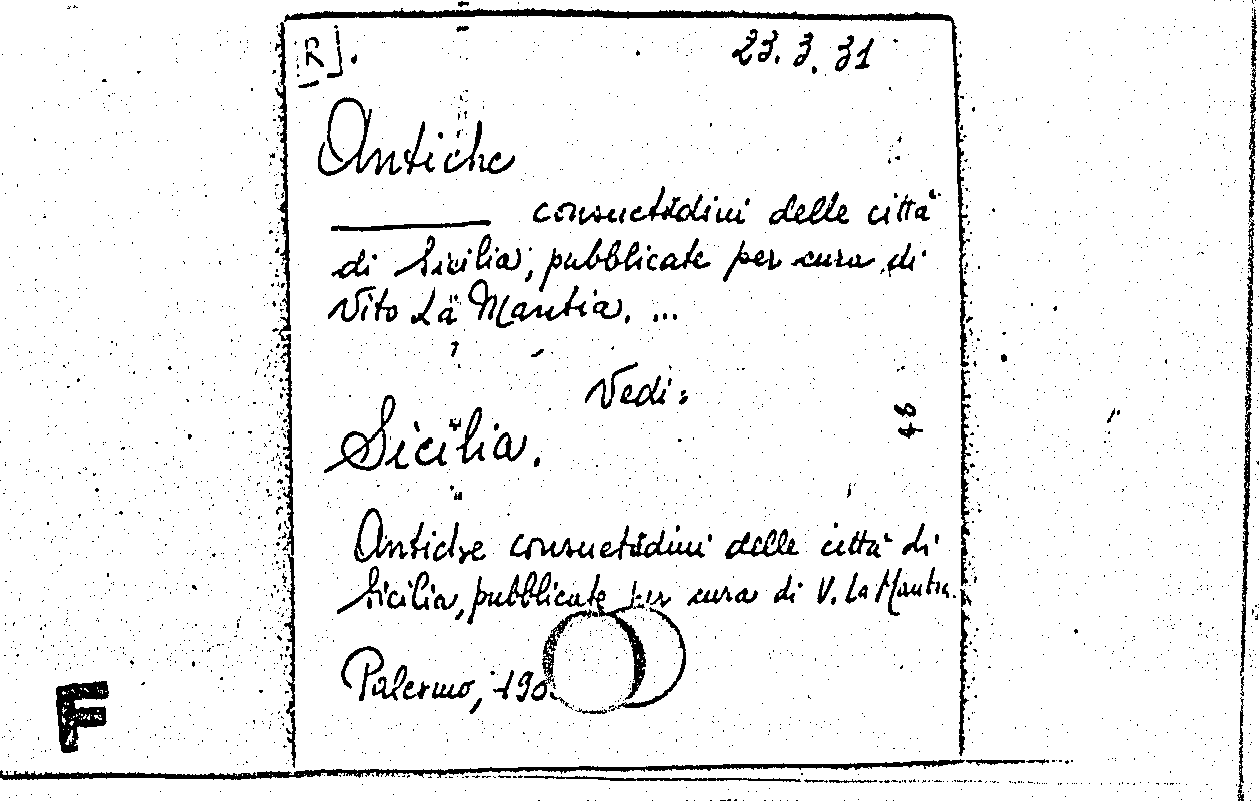 [R]. 23.3.31
Antiche
consuetüdini delle città
di Sicilia, pubblicate per cura di
Vito La Mantia. ...
Vedi:
Sicilia.
Antiche consuetüdini delle città di
Sicilia, pubblicate per cura di V. La Mantia.
Palermo, 190
F